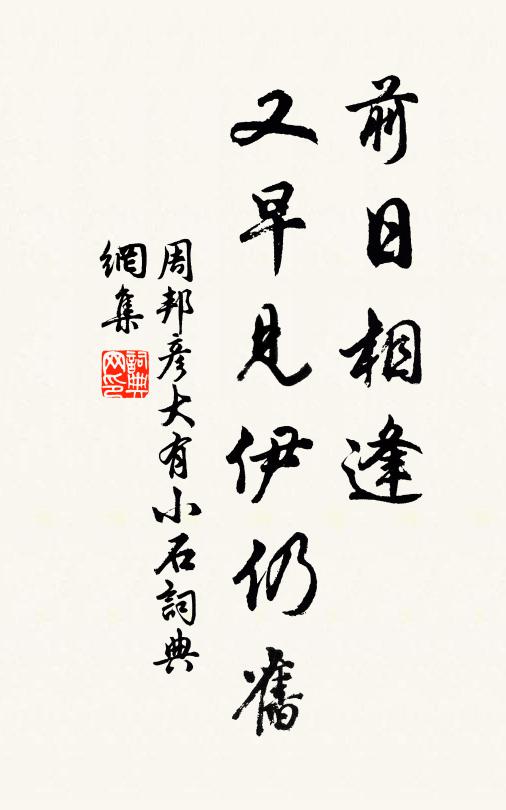 前日相逢
又早見伊仍舊
周邦彥大有小石詞典
網集
詞典網印